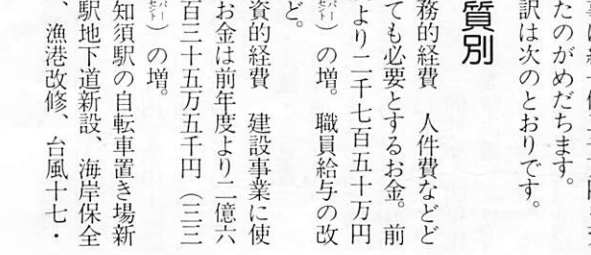 たのがめだちます。
訳は次のとおりです。
質別
務的経費　人件費などど
ても必要とするお金。前
より二千七百五十万円
パーセント）の増。職員給与の改
ど。
資的経費　建設事業に使
お金は前年度より二億六
百三十五万五千円（三三
パーセント）の増。
知須駅の自転車置き場新
駅地下道新設、海岸保全
、漁港改修、台風十七・